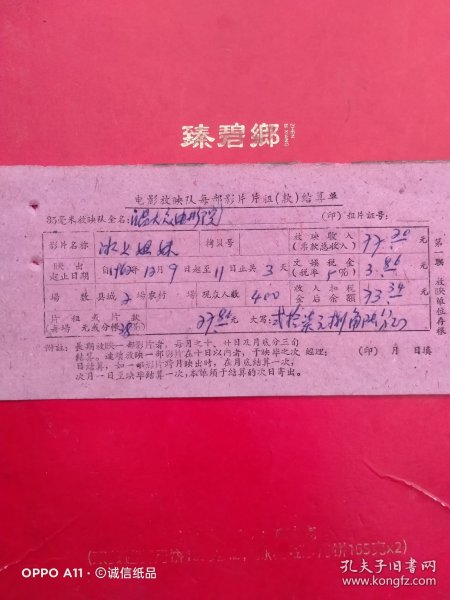 臻碧鄉
电影放映队每部影片片租(款)结算单
35毫米放映队全名: (印) 租片证号:
影片名称 冰上姐妹 拷贝号 放映收入(票款总收入) 77.20元
映出起止日期 自1963年12月9日起至11日止共3天 交娱税金(税率5%) 3.86元
场数 县城2场农村 场 观众人数 400 收入扣税金后余额 73.34元
片租或片款 每场 元或分帐38% 27.86元 大写: 贰拾柒元捌角陆分
附注: 长期放映一部影片者, 每月之十、廿日及月底分三旬
结算, 连续放映一部影片在十日以内者, 于映毕之次
日结算, 如一部影片跨月映出时, 在月底结算一次,
次月一日至映毕结算一次, 本单须于结算的次日寄出。
经理: (印) 月 日填
第 联 放映单位存根
165克×2)
OPPO A11 · ©诚信纸品
孔夫子旧书网
www.kongfz.com